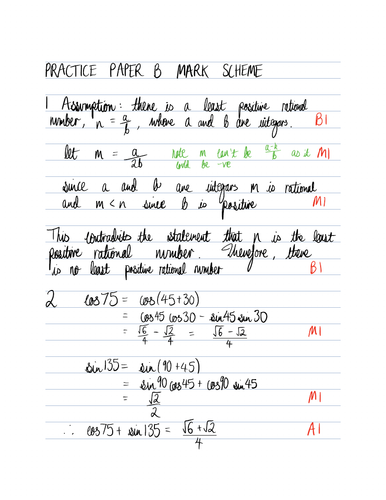 PRACTICE PAPER B MARK SCHEME
1 Assumption: there is a least positive rational
number, n = a/b, where a and b are integers. B1
let m = a/2b note m can't be a-k/b as it M1
could be -ve
since a and b are integers m is rational
and m < n since b is positive M1
This contradicts the statement that n is the least
positive rational number. Therefore, there
is no least positive rational number B1
2 cos75 = cos(45+30)
= cos45 cos30 - sin45 sin30
= √6/4 - √2/4 = √6-√2/4 M1
sin135 = sin(90+45)
= sin90 cos45 + cos90 sin45
= √2/2 M1
∴ cos75 + sin135 = √6+√2/4 A1